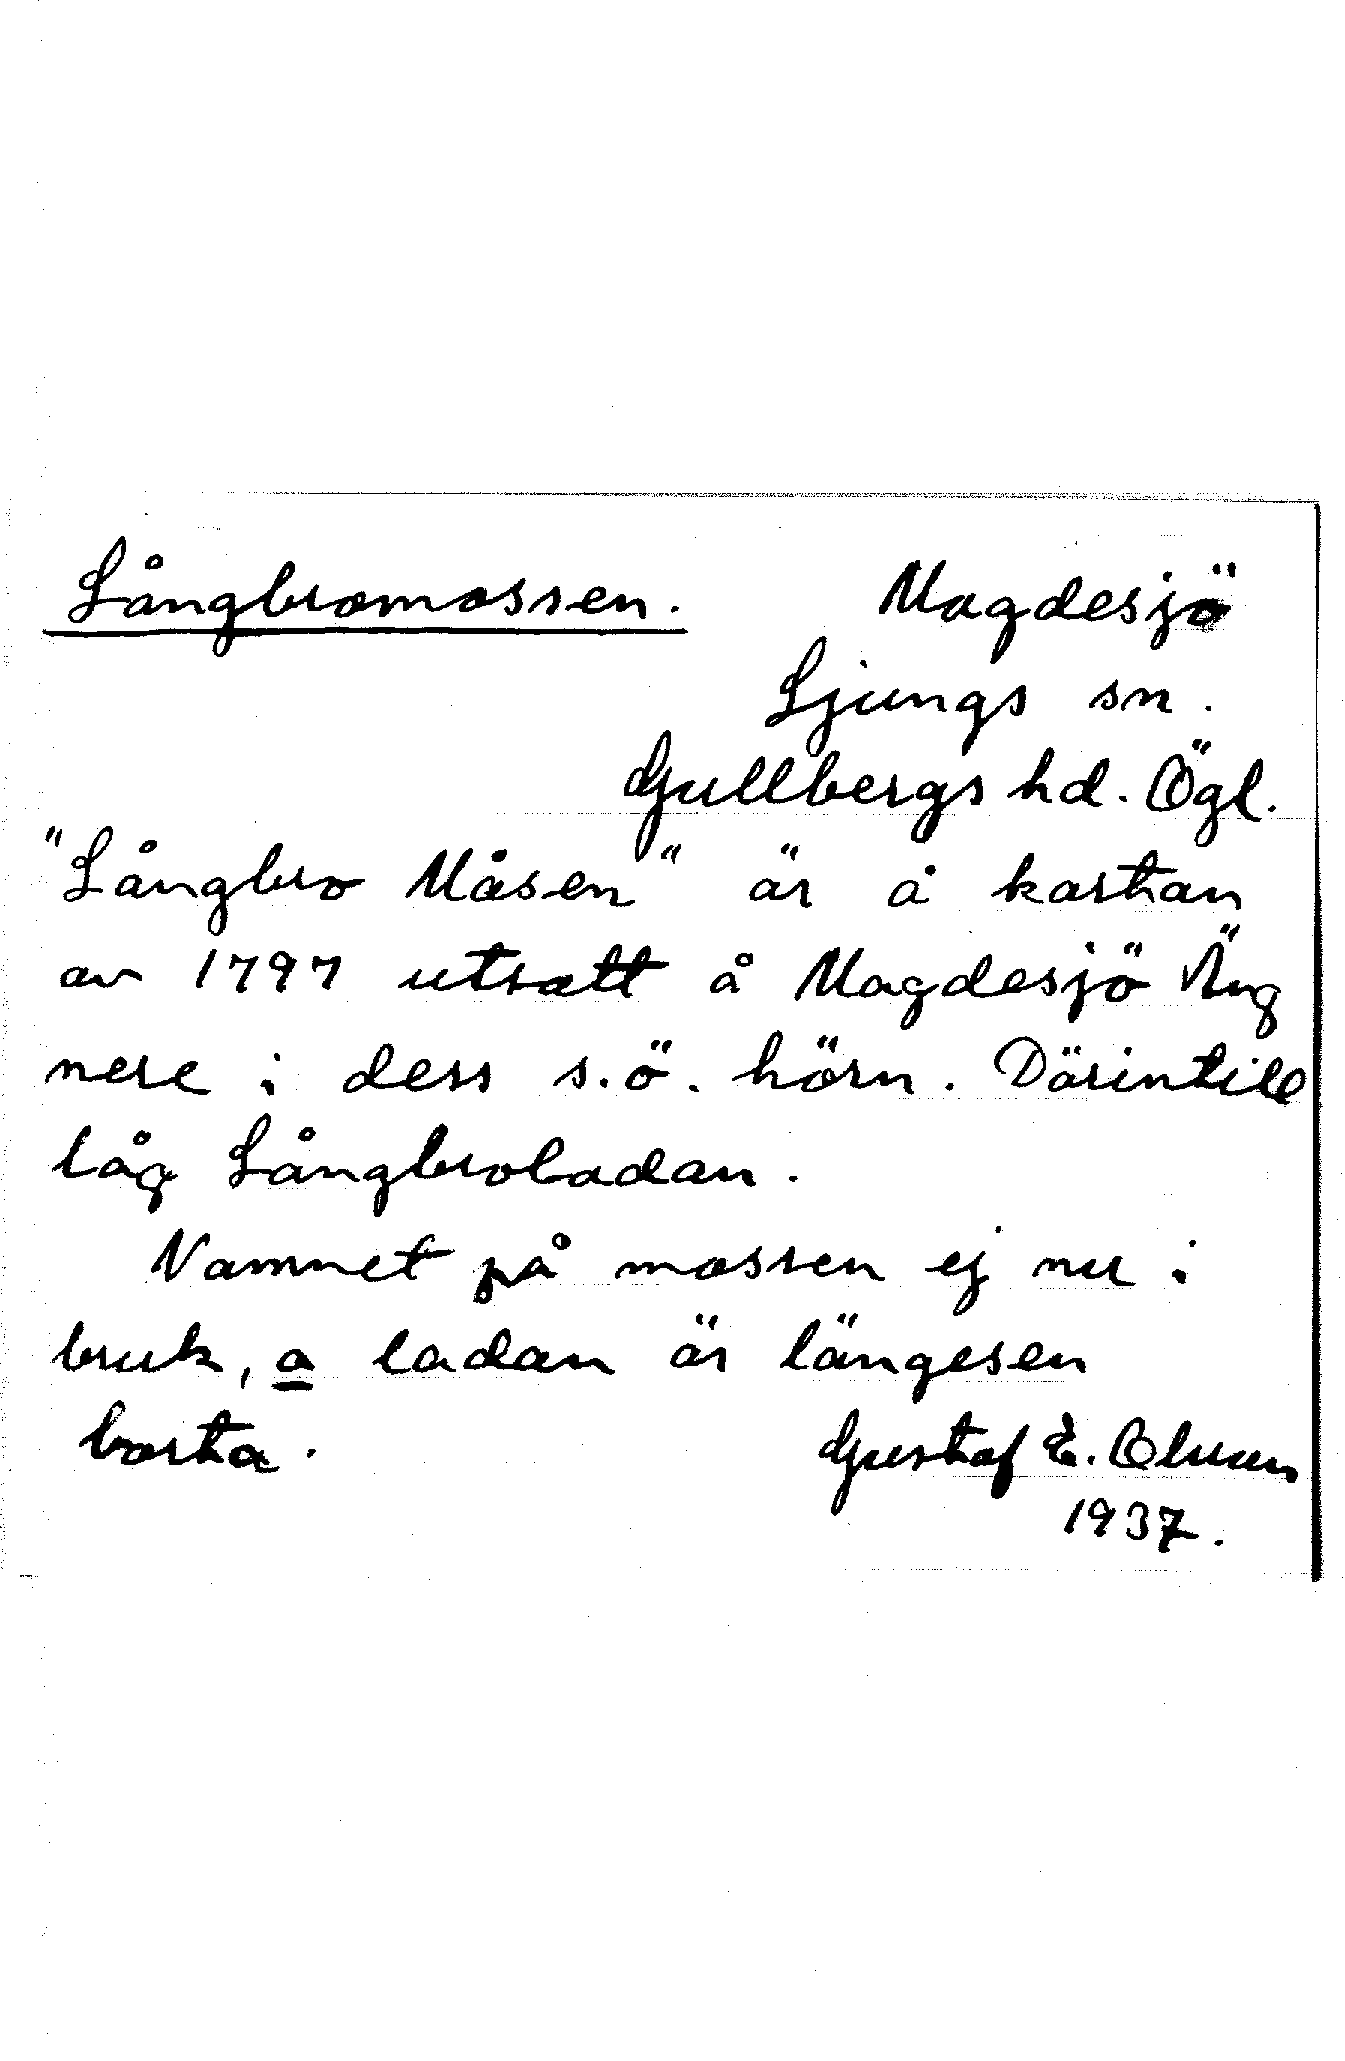 Långbromossen. Magdesjö
Ljungs sn.
Gullbergs hd. Ögl.
"Långbro Måsen" är å kartan
av 1797 utsatt å Magdesjö Äng
nere i dess s.ö. hörn. Därintill
låg Långbroladan.
Namnet på mossen ej nu i
bruk, o ladan är längesen
borta. Gustaf E. Olsson
1937.